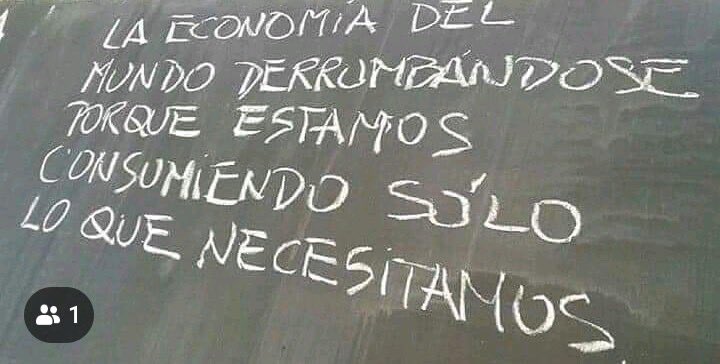 LA ECONOMÍA DEL
MUNDO DERRUMBÁNDOSE
PORQUE ESTAMOS
CONSUMIENDO SÓLO
LO QUE NECESITAMOS
1